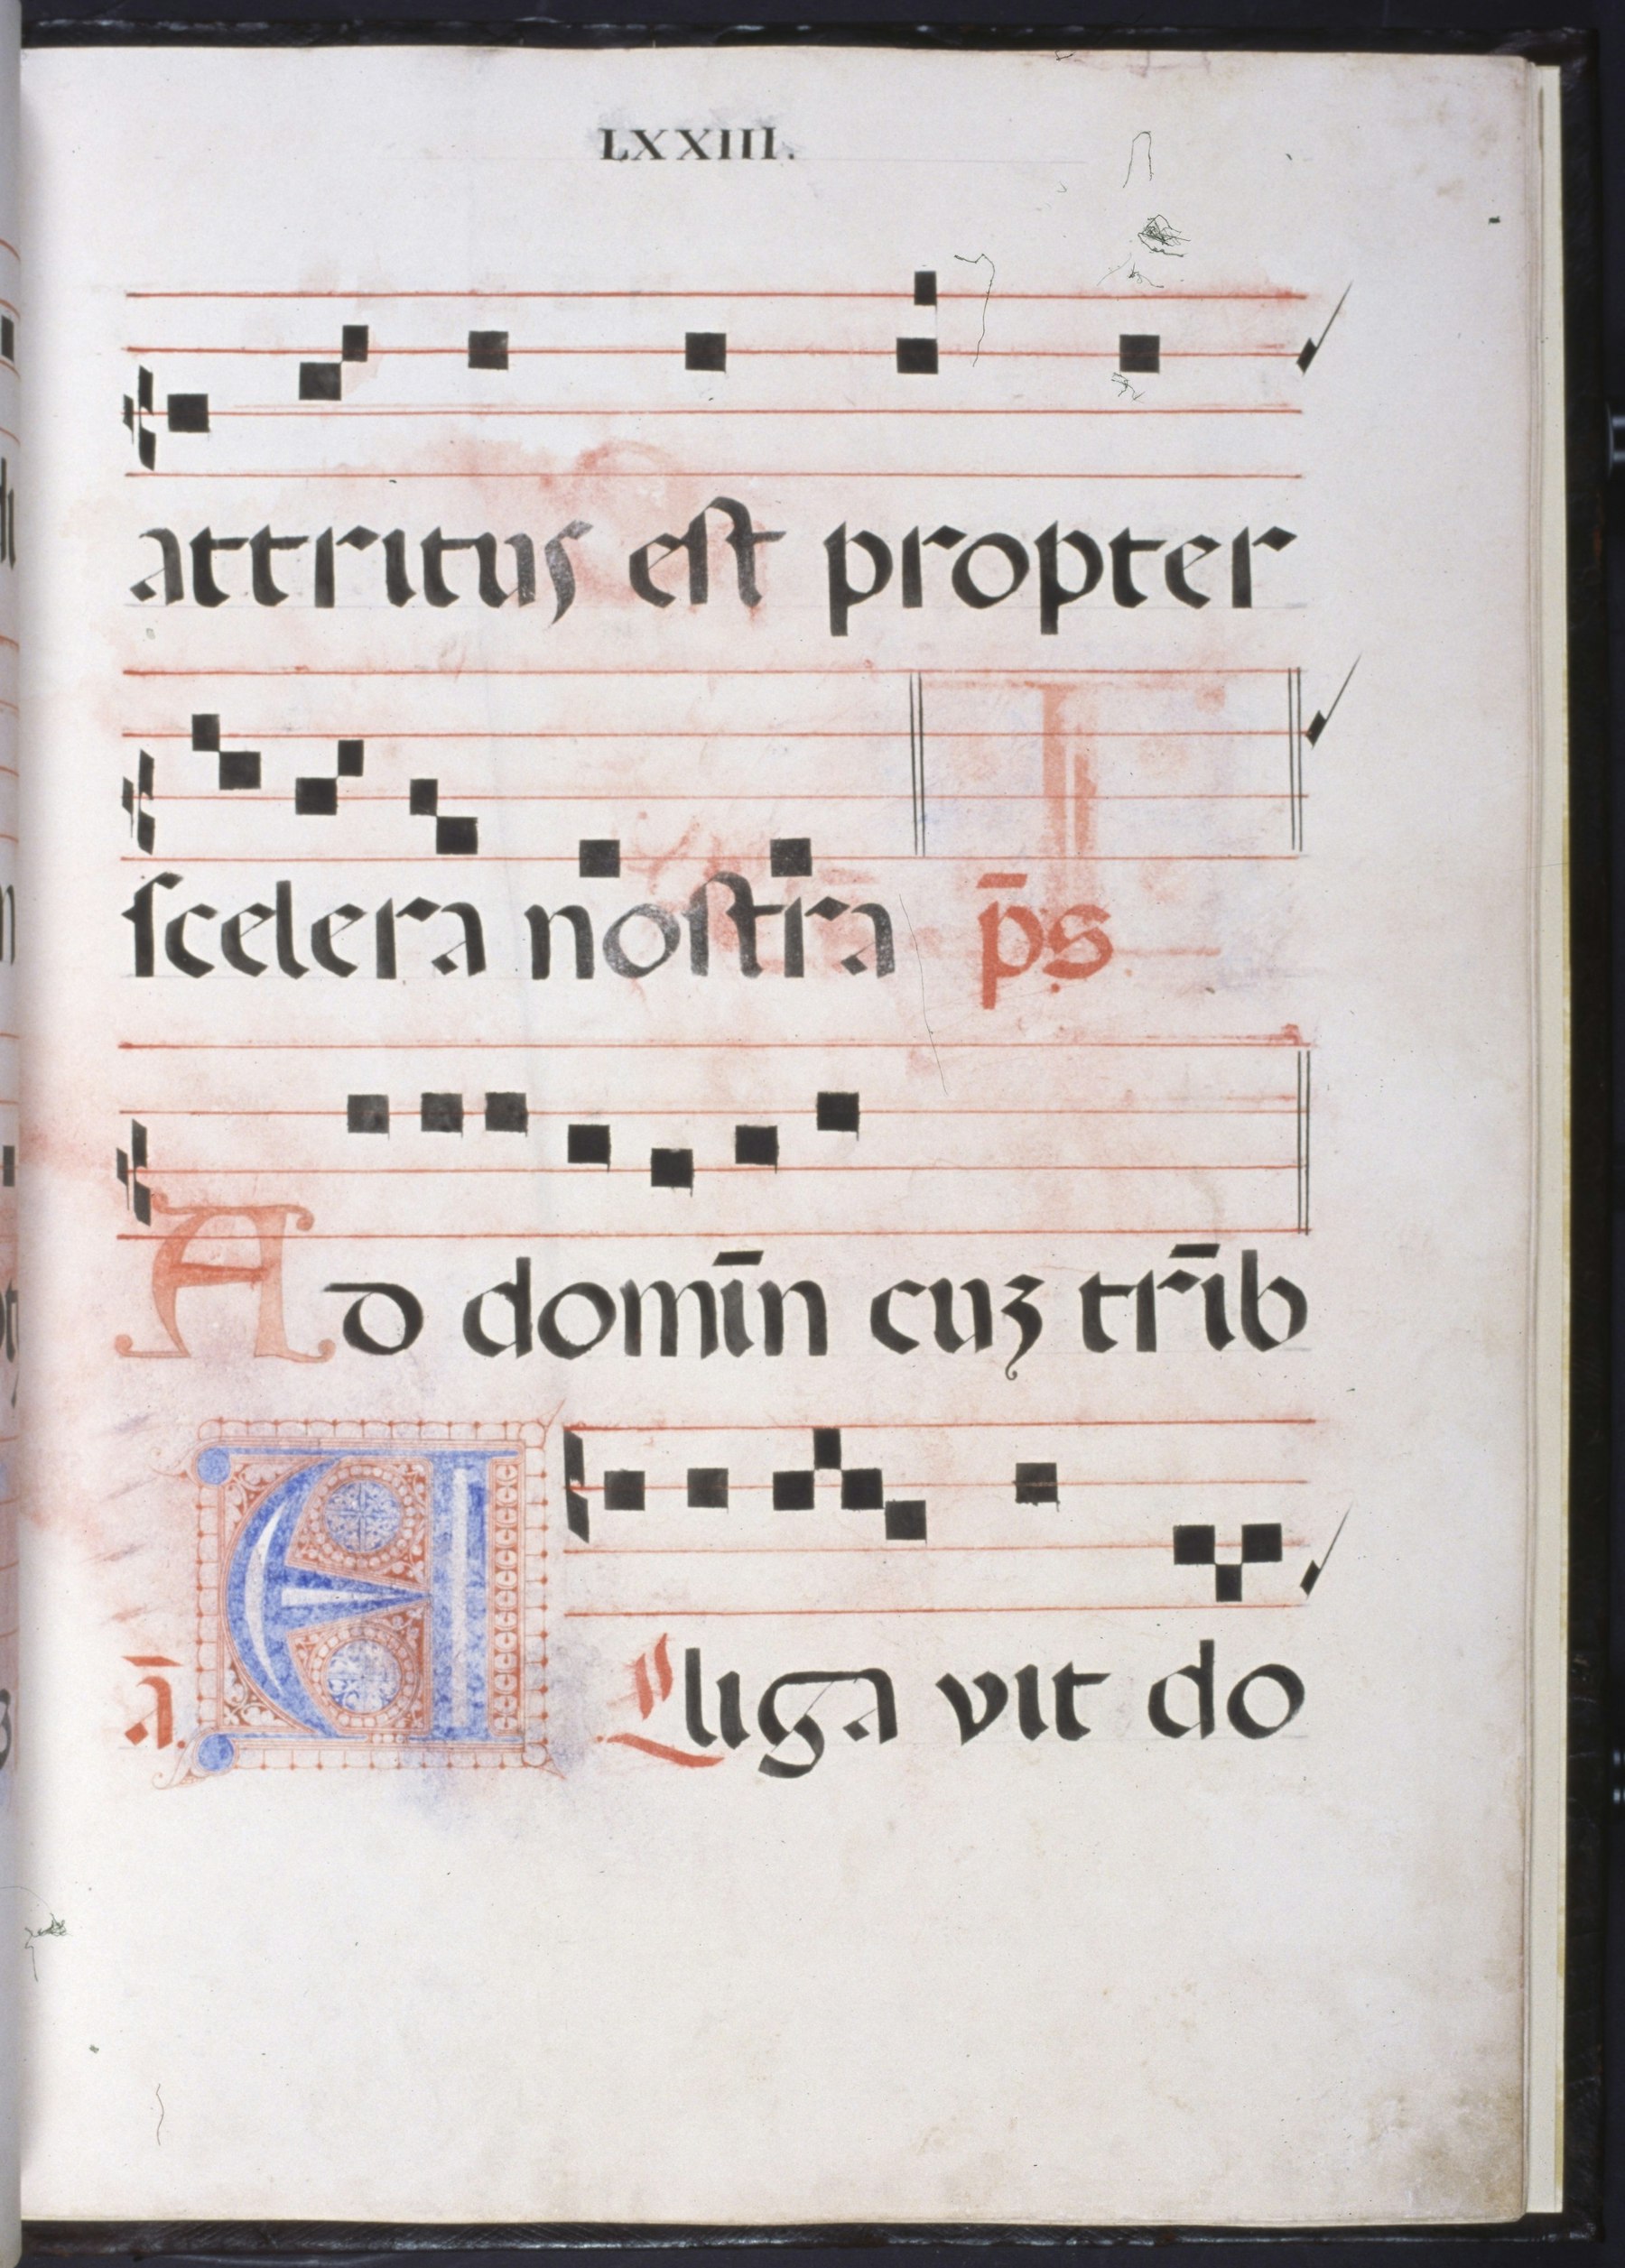 LXXIII.
attritus est propter
scelera nostra p̄s
Ad domīn cuꝫ tr̄ib
ā. Alliga vit do